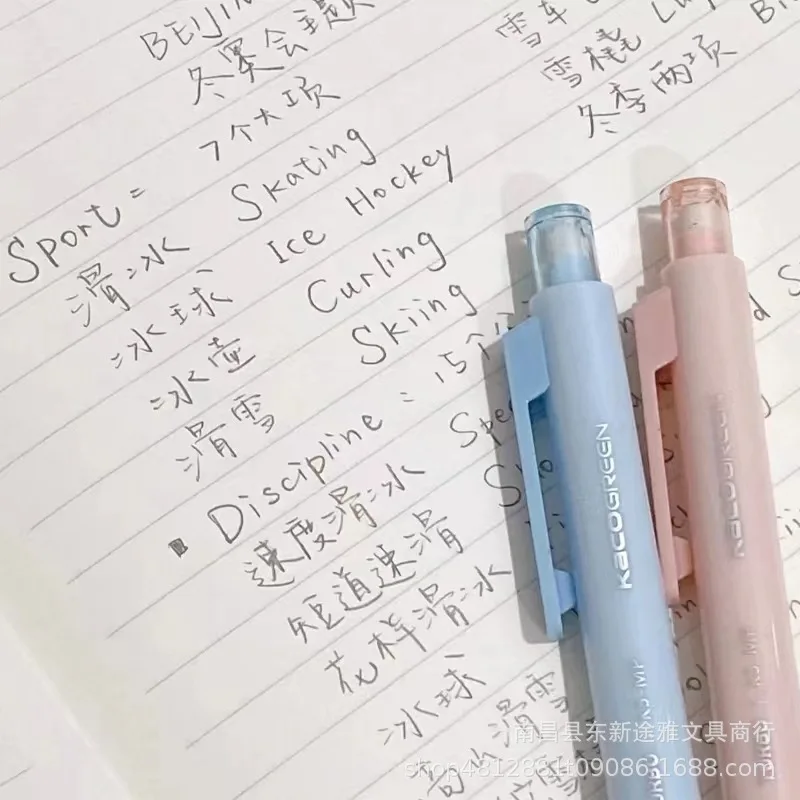 BEIJIN
冬奥会主题
7个大项
雪车
雪橇 Lu
冬季两项 Bi
Sport=
滑冰 Skating
冰球 Ice Hockey
冰壶 Curling
滑雪 Skiing
Discipline = 15个
速度滑冰 Spe
短道速滑 Sho
花样滑冰
冰球
滑雪
KACOGREEN
KACOGREEN
南昌县东新途雅文具商行
shop4812881t09086.1688.com